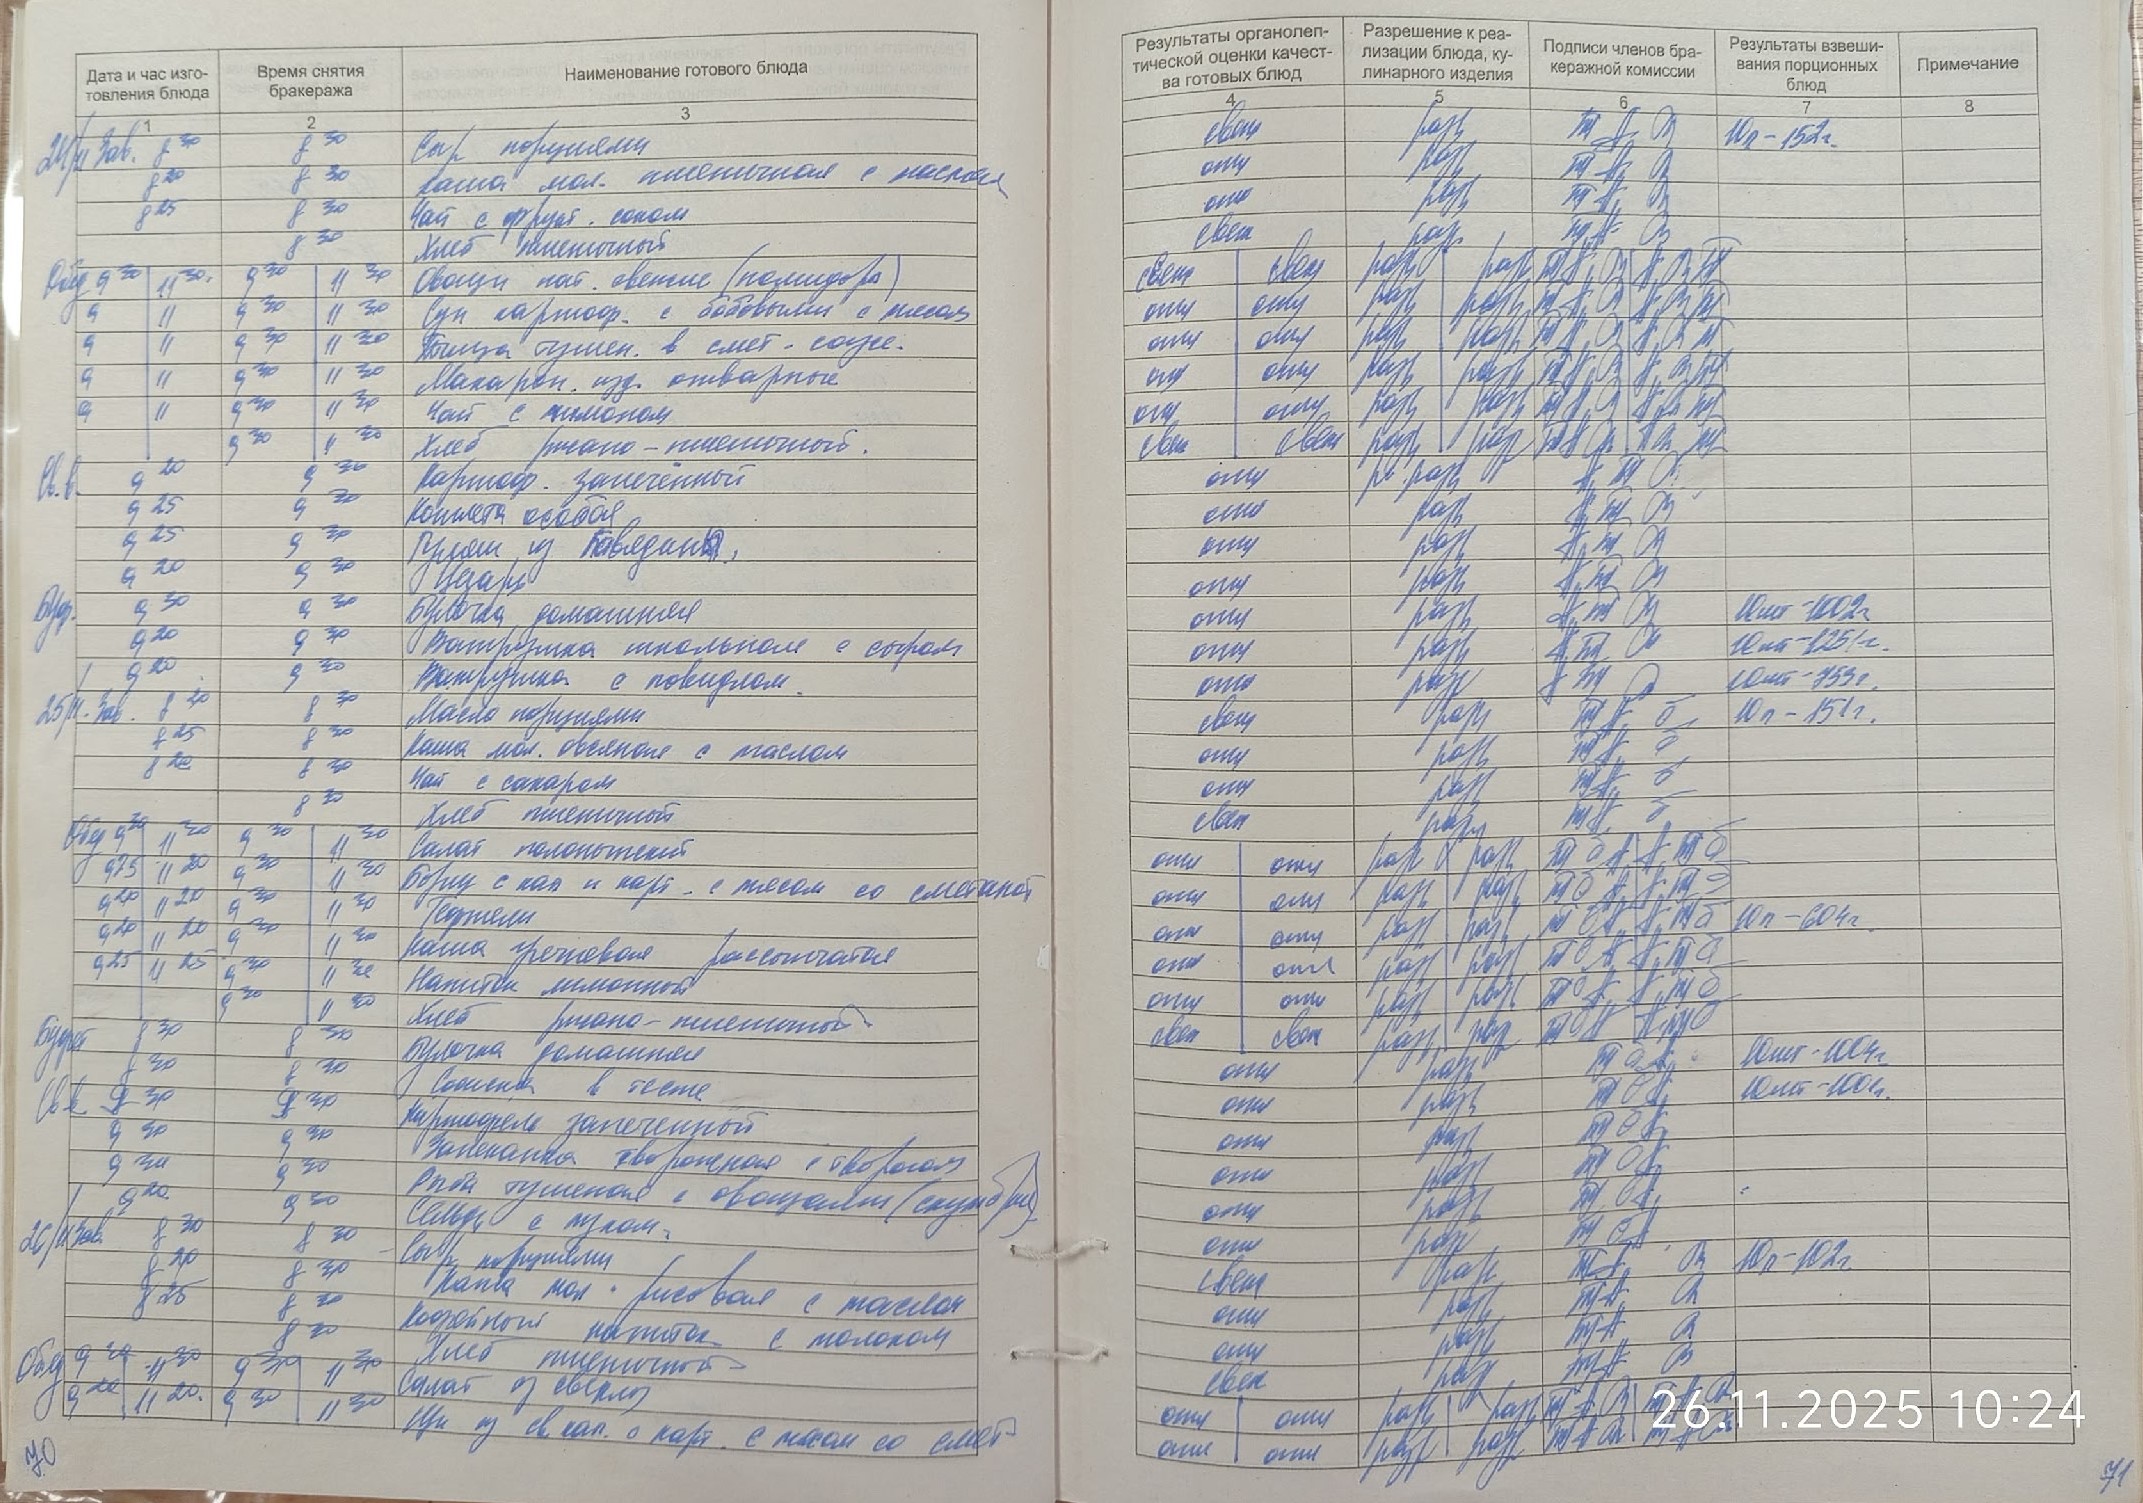 Дата и час изготовления блюда Время снятия бракеража Наименование готового блюда Результаты органолептической оценки качества готовых блюд Разрешение к реализации блюда, кулинарного изделия Подписи членов бракеражной комиссии Результаты взвешивания порционных блюд Примечание
1 2 3 4 5 6 7 8
24/11 Зав. 8 20 8 30 Сыр порциями свеж разр 10п-152г.
8 20 8 30 Каша мол. пшеничная с маслом отл разр
8 25 8 30 Чай с фрукт. соком отл разр
8 30 Хлеб пшеничный свеж разр
Обед 9 30 11 30 9 30 11 30 Овощи нат. свежие (помидоры) свеж свеж разр разр
9 11 9 30 11 30 Суп картоф. с бобовыми с мясом отл отл разр разр
9 11 9 30 11 30 Птица тушен. в смет. соусе. отл отл разр разр
9 11 9 30 11 30 Макарон. изд. отварные отл отл разр разр
9 11 9 30 11 30 Чай с лимоном отл отл разр разр
9 30 11 30 Хлеб ржано-пшеничный. свеж свеж разр разр
Св.в. 9 20 9 30 Картоф. запечённый отл разр
9 25 9 30 Котлета особая отл разр
9 25 9 30 Гуляш из говядины. отл разр
9 20 9 30 Цезарь отл разр
Буф. 9 30 9 30 Булочка домашняя отл разр 10шт-1002г
9 20 9 30 Ватрушка школьная с сыром отл разр 10шт-1251г.
9 20 9 30 Ватрушка с повидлом. отл разр 10шт-753г.
25/11. Зав. 8 20 8 30 Масло порциями свеж разр 10п-151г.
8 25 8 30 Каша мол. овсяная с маслом отл разр
8 20 8 30 Чай с сахаром отл разр
8 30 Хлеб пшеничный свеж разр
Обед 9 20 11 20 9 30 11 30 Салат отл отл разр разр
9 25 11 20 9 30 11 30 Борщ с кап и карт. с мясом со сметаной отл отл разр разр
9 20 11 20 9 30 11 30 Тефтели отл отл разр разр 10п-604г.
9 20 11 20 9 30 11 30 Каша гречневая рассыпчатая отл отл разр разр
9 25 11 25 9 30 11 30 Напиток лимонный отл отл разр разр
9 30 11 30 Хлеб ржано-пшеничный свеж свеж разр разр
Буфет 8 30 8 30 Булочка домашняя отл разр 10шт-1004г
8 30 8 30 Сосиска в тесте отл разр 10шт-1001г.
Св.в 9 30 9 30 Картофель запеченный отл разр
9 30 9 30 Запеканка творожная с творогом отл разр
9 30 9 30 Рыба тушеная с овощами (скумбрия) отл разр
9 20. 9 30 Сельдь с луком. отл разр
26/11 Зав. 8 20 8 30 Сыр порциями свеж разр 10п-102г.
8 20 8 30 Каша мол. рисовая с маслом отл разр
8 25 8 30 Кофейный напиток с молоком отл разр
8 30 Хлеб пшеничный свеж разр
Обед 9 20 11 20 9 30 11 30 Салат из свеклы отл отл разр разр
9 20 11 20. 9 30 11 30 Щи из св. кап. с карт. с мясом со смет отл отл разр разр
26.11.2025 10:24
70
71